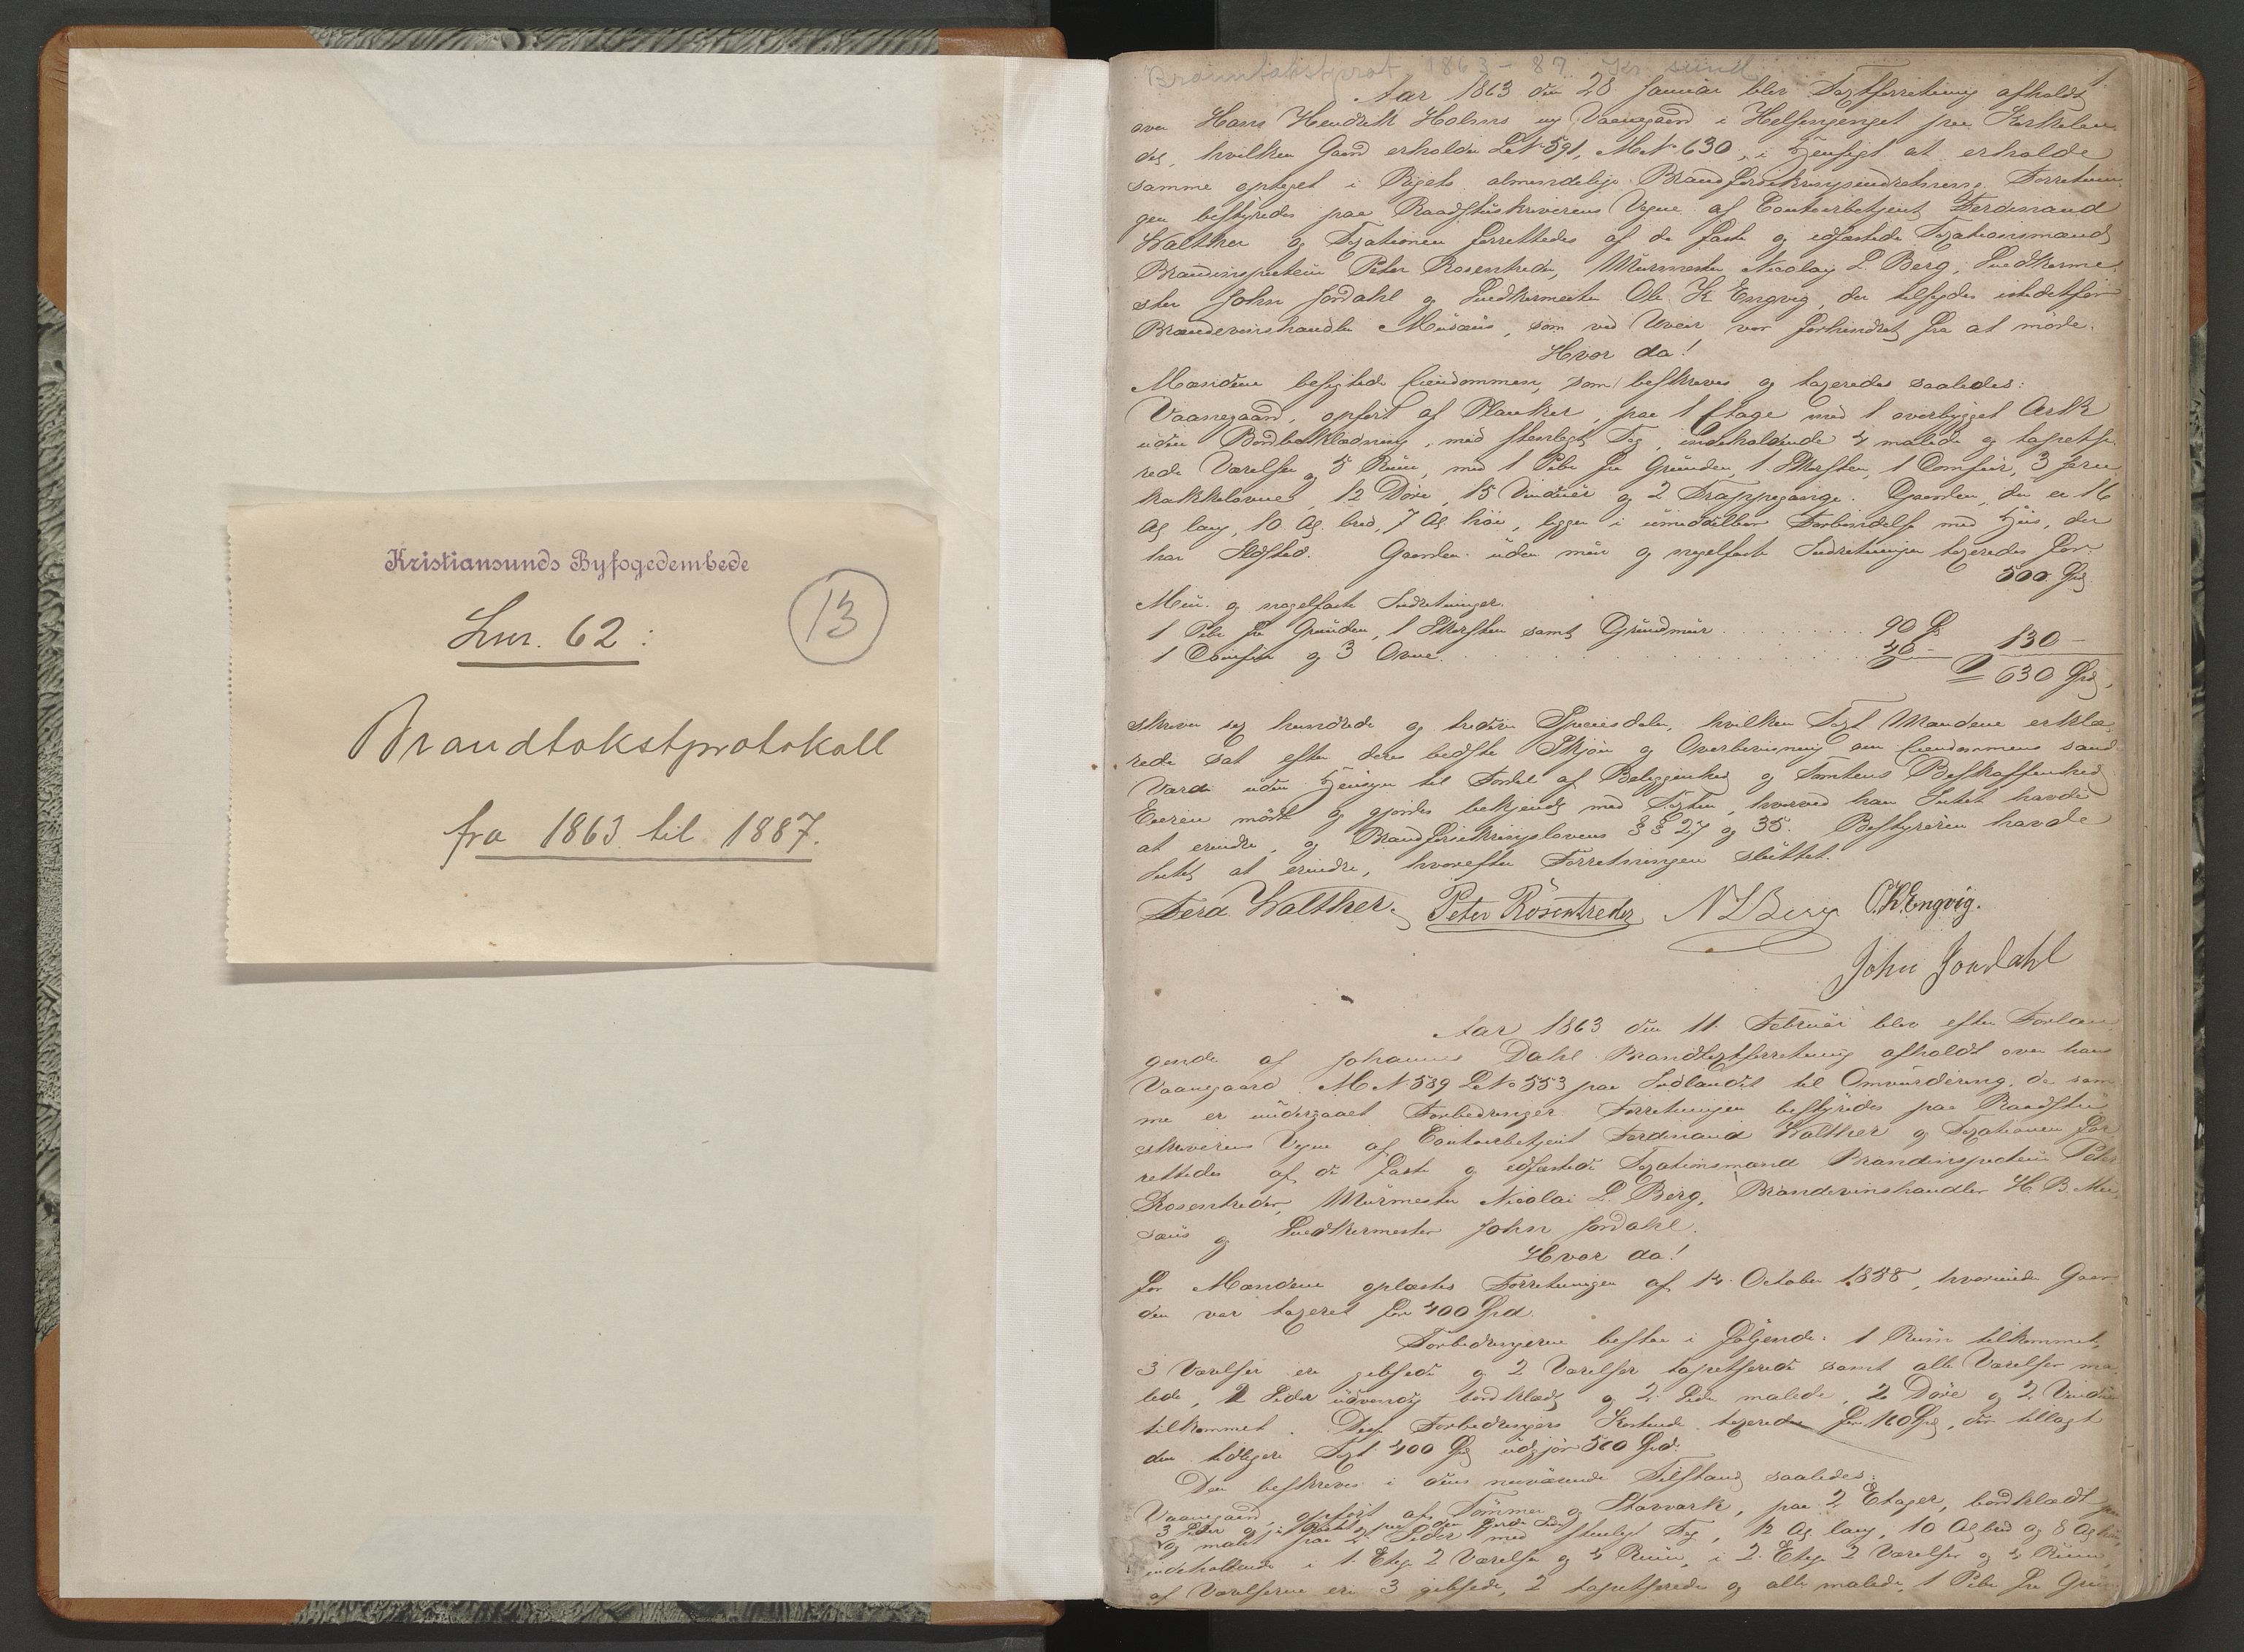 Kristiansunds Byfogedembede
13
Lnr. 62:
Brandtakstprotokoll
fra 1863 til 1887.
Branntakstprot. 1863-87 Kr.sund
1.
Aar 1863 den 28 Januar blev Taxtforretning afholdt
over Hans Hendrik Holms ny Vaanegaard i Helsingenget paa Kirkelan-
det, hvilken Gaard erholder L.No 591, M.No 630, i Hensigt at erholde
samme optaget i Rigets almindelige Brandforsikringsindretning. Forretnin-
gen bestyredes paa Raadstueskriverens Vegne af Contoirbetjent Ferdinand
Walther og Taxationen forrettedes af de faste og edfæstede Taxationsmænd
Brandinspecteur Peter Rosentreder, Muurmester Nicolay L. Berg, Snedkerme-
ster John Jordahl og Snedkermester Ole K Engvig, der tilsagdes istedetfor
Brændeviinshandler Musæus, som ved Uveir var forhindret fra at møde.
Hvor da!
Mændene besigtede Eiendommen, som beskreves og taxeredes saaledes:
Vaanegaard, opført af Planker, paa 1 Etage med 1 overbygget Ark
uden Bordbeklædning, med steenlagt Tag, indeholdende 4 malede og tapetse-
rede Værelser og 5 Rum, med 1 Pibe fra Grunden, 1 Skorsten, 1 Comfur, 3 jern
kakkelovne, 12 Døre, 15 Vinduer og 2 Trappegange. Gaarden, der er 16
Al. lang, 10 Al. bred, 7 Al. høi, ligger i umiddelbar Forbindelse med Huus, der
har Ildsted. Gaarden uden muur og nagelfaste Indretninger taxeredes for:
500 Spd
Muur- og nagelfaste Indretninger.
1 Pibe fra Grunden, 1 Skorsten samt Grundmuur . . . . . . . . 90 Spd
1 Comfur og 3 Ovne . . . . . . . . . . 40 - 130 -
630 Spd,
skriver sex hundrede og tredive Speciesdaler, hvilken Taxt Mændene erklæ-
rede sat efter deres bedste Skjøn og Overbevisning om Eiendommens sand
Værdi uden Hensyn til Fordel af Beliggenhed og Tomtens Beskaffenhed
Eieren mødte og gjordes bekjendt med Taxten, hvorved han Intet havde
at erindre, og Brandforsikringslovens §§ 27 og 35. Bestyreren havde
Intet at erindre, hvorefter Forretningen sluttet.
Ferd. Walther. Peter Rosentreder N L Berg O. K. Engvig.
John Jordahl
Aar 1863 den 11. Februar blev efter Forlan-
gende af Johannes Dahl Brandtaxtforretning afholdt over hans
Vaanegaard M.No 589 L.No 553 paa Indlandet til Omvurdering, da sam-
me er undergaaet Forbedringer. Forretningen bestyredes paa Raadstue
skriverens Vegne af Contoirbetjent Ferdinand Walther og Taxationen for-
rettedes af de faste og edfæstede Taxationsmænd Brandinspecteur Peter
Rosentreder, Muurmester Nicolai L. Berg, Brændevinshandler H. B. Mu-
sæus og Snedkermester John Jordahl.
Hvor da!
For Mændene oplæstes Forretningen af 14. October 1858, hvorunder Gaar-
den var taxeret for 400 Spd.
Forbedringerne bestaa i følgende: 1 Rum tilkommet,
3 Værelser ere gibsede og 2 Værelser tapetserede samt alle Værelser ma-
lede, 2 Sider udvendig bordklædt og 2 Sider malede, 2 Døre og 2 Vinduer
tilkommet. Disse Forbedringers Kostende taxeredes for 160 Spd, der tillagt
den tidligere Taxt 400 Spd udgjør 560 Spd.
Den beskreves i dens nuværende Tilstand saaledes:
Vaanegaard, opført af Tømmer og Stavværk, paa 2 Etager, bordklædt paa
3 Sider og paa den fjerde Side
og malet paa 2 Sider med steenlagt Tag, 12 Al. lang, 10 Al bred og 8 Al høi,
indeholdende i 1. Etage 2 Værelser og 4 Rum, i 2. Etage 2 Værelser og 4 Rum,
af Værelserne ere 3 gibsede, 2 tapetserede og alle malede, 1 Pibe fra Grun-